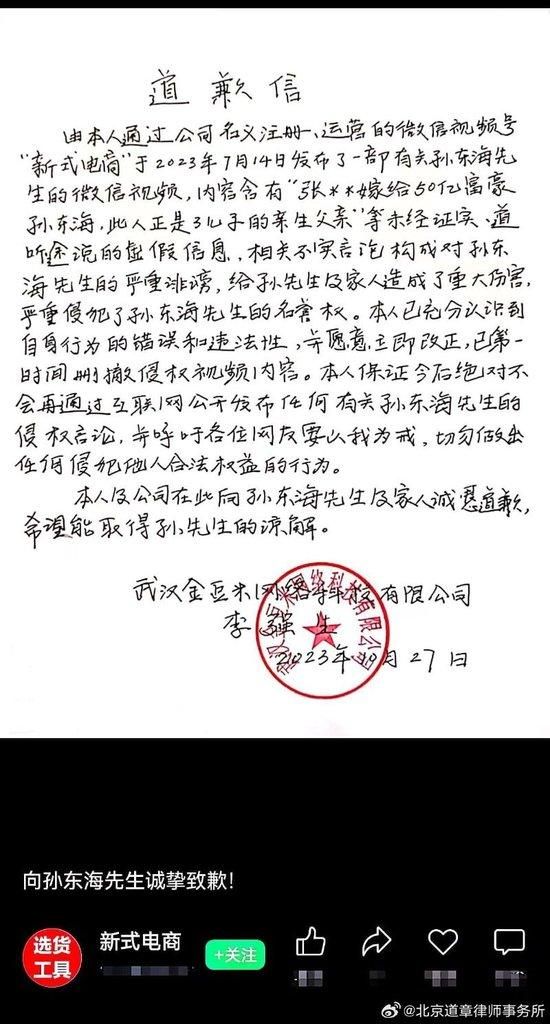 道歉信
由本人通过公司名义注册、运营的微信视频号
"新式电商"于2023年7月14日发布了一部有关孙东海先
生的微信视频，内容含有"张**嫁给50亿富豪
孙东海，此人正是3儿子的亲生父亲"等未经证实、道
听途说的虚假信息，相关不实言论构成对孙东
海先生的严重诽谤，给孙先生及家人造成了重大伤害，
严重侵犯了孙东海先生的名誉权。本人已充分认识到
自身行为的错误和违法性，并愿意立即改正，已第一
时间删撤侵权视频内容。本人保证今后绝对不
会再通过互联网公开发布任何有关孙东海先生的
侵权言论，并呼吁各位网友要以我为戒，切勿做出
任何侵犯他人合法权益的行为。
本人及公司在此向孙东海先生及家人诚恳道歉，
希望能取得孙先生的谅解。
武汉金豆米网络科技有限公司
李强生
2023年10月27日
向孙东海先生诚挚致歉!
选货
工具
新式电商
+关注
@北京道章律师事务所